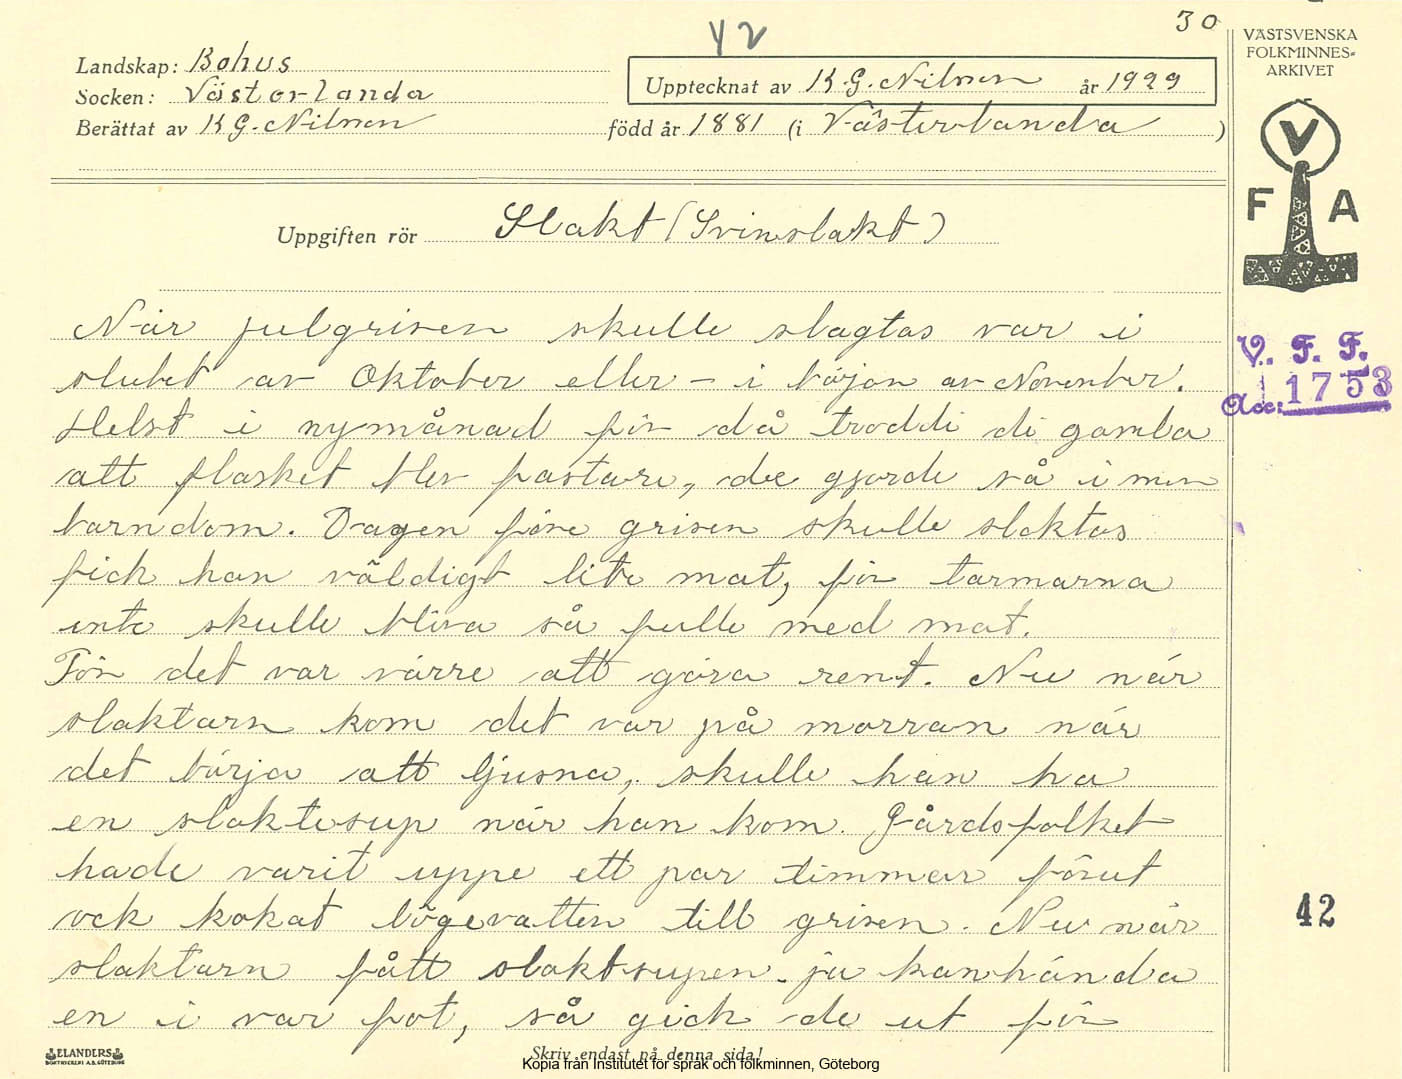 30
42
VÄSTSVENSKA
FOLKMINNES-
ARKIVET
Landskap: Bohus
Socken: Västerlanda
Upptecknat av K.G. Nilsson år 1929
Berättat av K G. Nilsson född år 1881 (i Västerlanda )
V
F A
Uppgiften rör Slakt (Svinslakt)
När julgrisen skulle slagtas var i
slutet av Oktober eller – i börjon av November.
Helst i nymånad för då troddi di gamla
att flasket blev fastare, dee gjorde så i min
barndom. Dagen före grisen skulle slaktas
fick han väldigt lite mat, för tarmarna
inte skulle bliva så fulle med mat.
För det var värre att göra rent. Nu när
slaktarn kom det var på morran när
det börja att ljusna, skulle han ha
en slaktesup när han kom. Gårdsfolket
hade varit uppe ett par timmar förut
ock kokat lögevatten till grisen. Nu när
slaktarn fått slaktsupen ja kanhända
en i var fot, så gick de ut för
V. F. F.
Acc: 1753
42
ELANDERS
BOKTRYCKERI A.B. GÖTEBORG
Skriv endast på denna sida!
Kopia från Institutet för språk och folkminnen, Göteborg